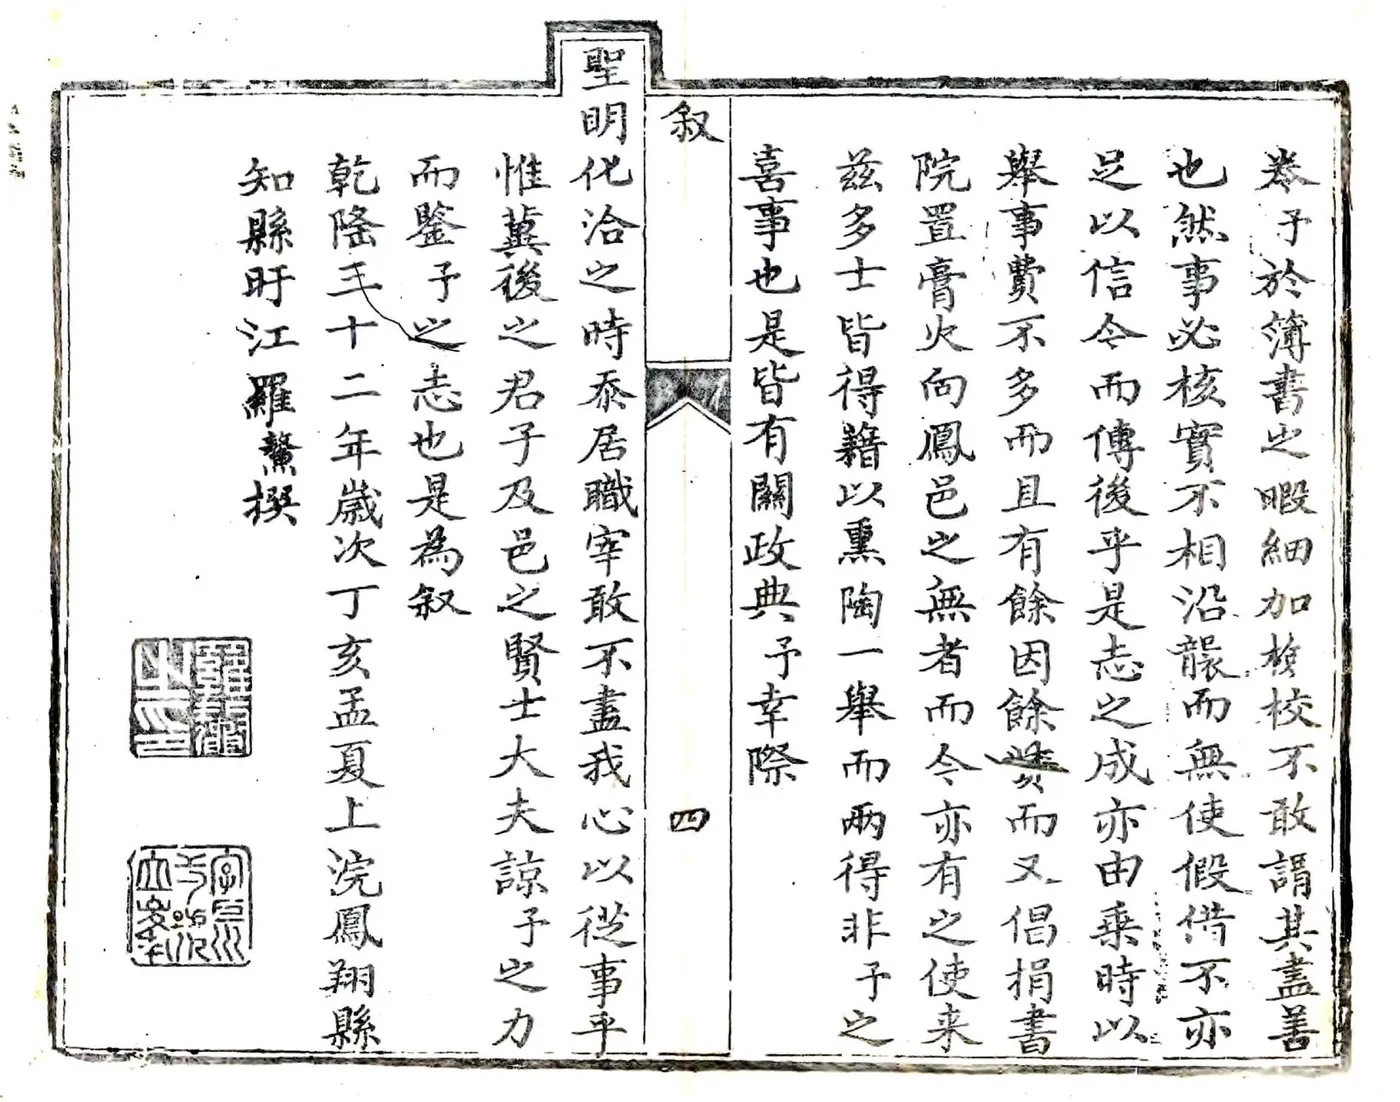 叅予於簿書之暇細加檢校不敢謂其盡善
也然事必核實不相沿襲而無使假借不亦
足以信今而傳後乎是志之成亦由乘時以
舉事費不多而且有餘因餘貲而又倡捐書
院置膏火向鳳邑之無者而今亦有之使来
兹多士皆得籍以熏陶一舉而兩得非予之
喜事也是皆有關政典予幸際
叙
四
聖明化洽之時忝居職宰敢不盡我心以從事乎
惟冀後之君子及邑之賢士大夫諒予之力
而鑒予之志也是為叙
乾隆三十二年歲次丁亥孟夏上浣鳳翔縣
知縣盱江羅鰲撰
羅鰲之印